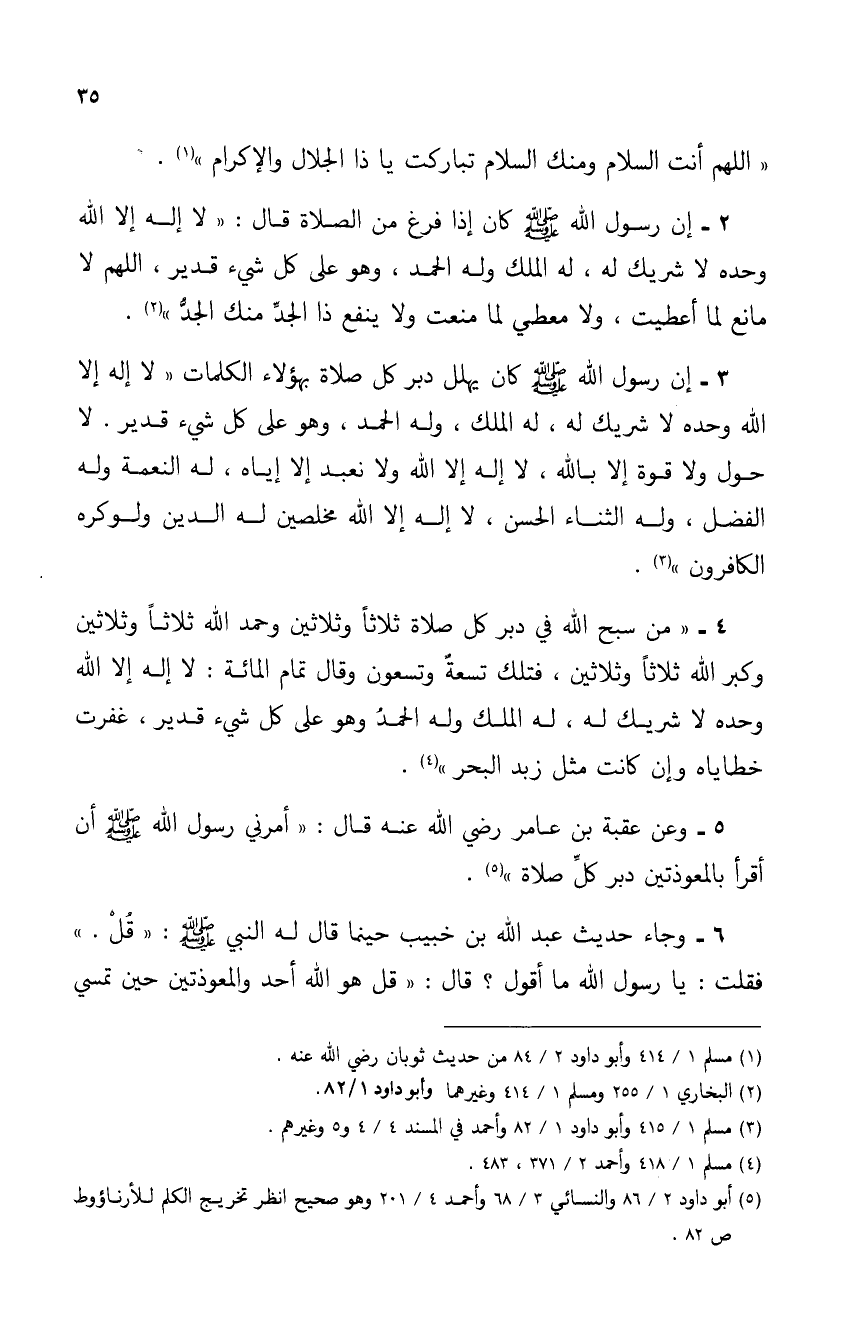 ٣٥
« اللهم أنت السلام ومنك السلام تباركت يا ذا الجلال والإكرام »(١) .
٢ ـ إن رسول الله ﷺ كان إذا فرغ من الصلاة قال : « لا إله إلا الله
وحده لا شريك له ، له الملك وله الحمد ، وهو على كل شيء قدير ، اللهم لا
مانع لما أعطيت ، ولا معطي لما منعت ولا ينفع ذا الجدِّ منك الجدُّ »(٢) .
٣ ـ إن رسول الله ﷺ كان يهلل دبر كل صلاة بهؤلاء الكلمات « لا إله إلا
الله وحده لا شريك له ، له الملك ، وله الحمد ، وهو على كل شيء قدير . لا
حول ولا قوة إلا بالله ، لا إله إلا الله ولا نعبد إلا إياه ، له النعمة وله
الفضل ، وله الثناء الحسن ، لا إله إلا الله مخلصين له الدين ولوكره
الكافرون »(٣) .
٤ ـ « من سبح الله في دبر كل صلاة ثلاثاً وثلاثين وحمد الله ثلاثاً وثلاثين
وكبر الله ثلاثاً وثلاثين ، فتلك تسعةٌ وتسعون وقال تمام المائة : لا إله إلا الله
وحده لا شريك له ، له الملك وله الحمدُ وهو على كل شيء قدير ، غفرت
خطاياه وإن كانت مثل زبد البحر »(٤) .
٥ ـ وعن عقبة بن عامر رضي الله عنه قال : « أمرني رسول الله ﷺ أن
أقرأ بالمعوذتين دبر كلِّ صلاة »(٥) .
٦ ـ وجاء حديث عبد الله بن خبيب حينما قال له النبي ﷺ : « قُلْ . »
فقلت : يا رسول الله ما أقول ؟ قال : « قل هو الله أحد والمعوذتين حين تمسي
(١) مسلم ١ / ٤١٤ وأبو داود ٢ / ٨٤ من حديث ثوبان رضي الله عنه .
(٢) البخاري ١ / ٢٥٥ ومسلم ١ / ٤١٤ وغيرهما وأبو داود ١/‏٨٢.
(٣) مسلم ١ / ٤١٥ وأبو داود ١ / ٨٢ وأحمد في المسند ٤ / ٤ و٥ وغيرهم .
(٤) مسلم ١ / ٤١٨ وأحمد ٢ / ٣٧١ ، ٤٨٣ .
(٥) أبو داود ٢ / ٨٦ والنسائي ٣ / ٦٨ وأحمد ٤ / ٢٠١ وهو صحيح انظر تخريج الكلم للأرناؤوط
ص ٨٢ .